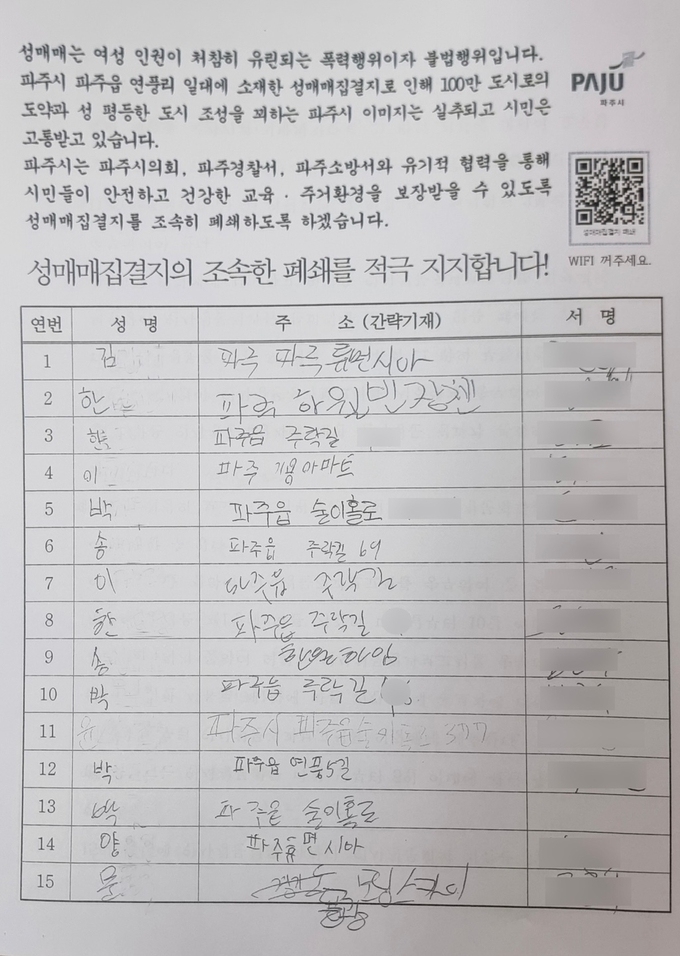 성매매는 여성 인권이 처참히 유린되는 폭력행위이자 불법행위입니다.
파주시 파주읍 연풍리 일대에 소재한 성매매집결지로 인해 100만 도시로의
도약과 성 평등한 도시 조성을 꾀하는 파주시 이미지는 실추되고 시민은
고통받고 있습니다.
파주시는 파주시의회, 파주경찰서, 파주소방서와 유기적 협력을 통해
시민들이 안전하고 건강한 교육 · 주거환경을 보장받을 수 있도록
성매매집결지를 조속히 폐쇄하도록 하겠습니다.
PAJU
파주시
성매매집결지 폐쇄
WIFI 꺼주세요.
성매매집결지의 조속한 폐쇄를 적극 지지합니다!
연번 성 명 주 소 (간략기재) 서 명
1 김 파주 파주
2 한 파주
3 한 파주읍 주락길
4 이 파주
5 박 파주읍 술이홀로
6 송 파주읍 주락길 69
7 이 파주읍 주락길
8 한 파주읍 주락길
9 송
10 박 파주읍 주락길
11 윤 파주시 파주읍 377
12 박 파주읍 연풍5길
13 박 파주읍 술이홀로
14 양 파주
15 문